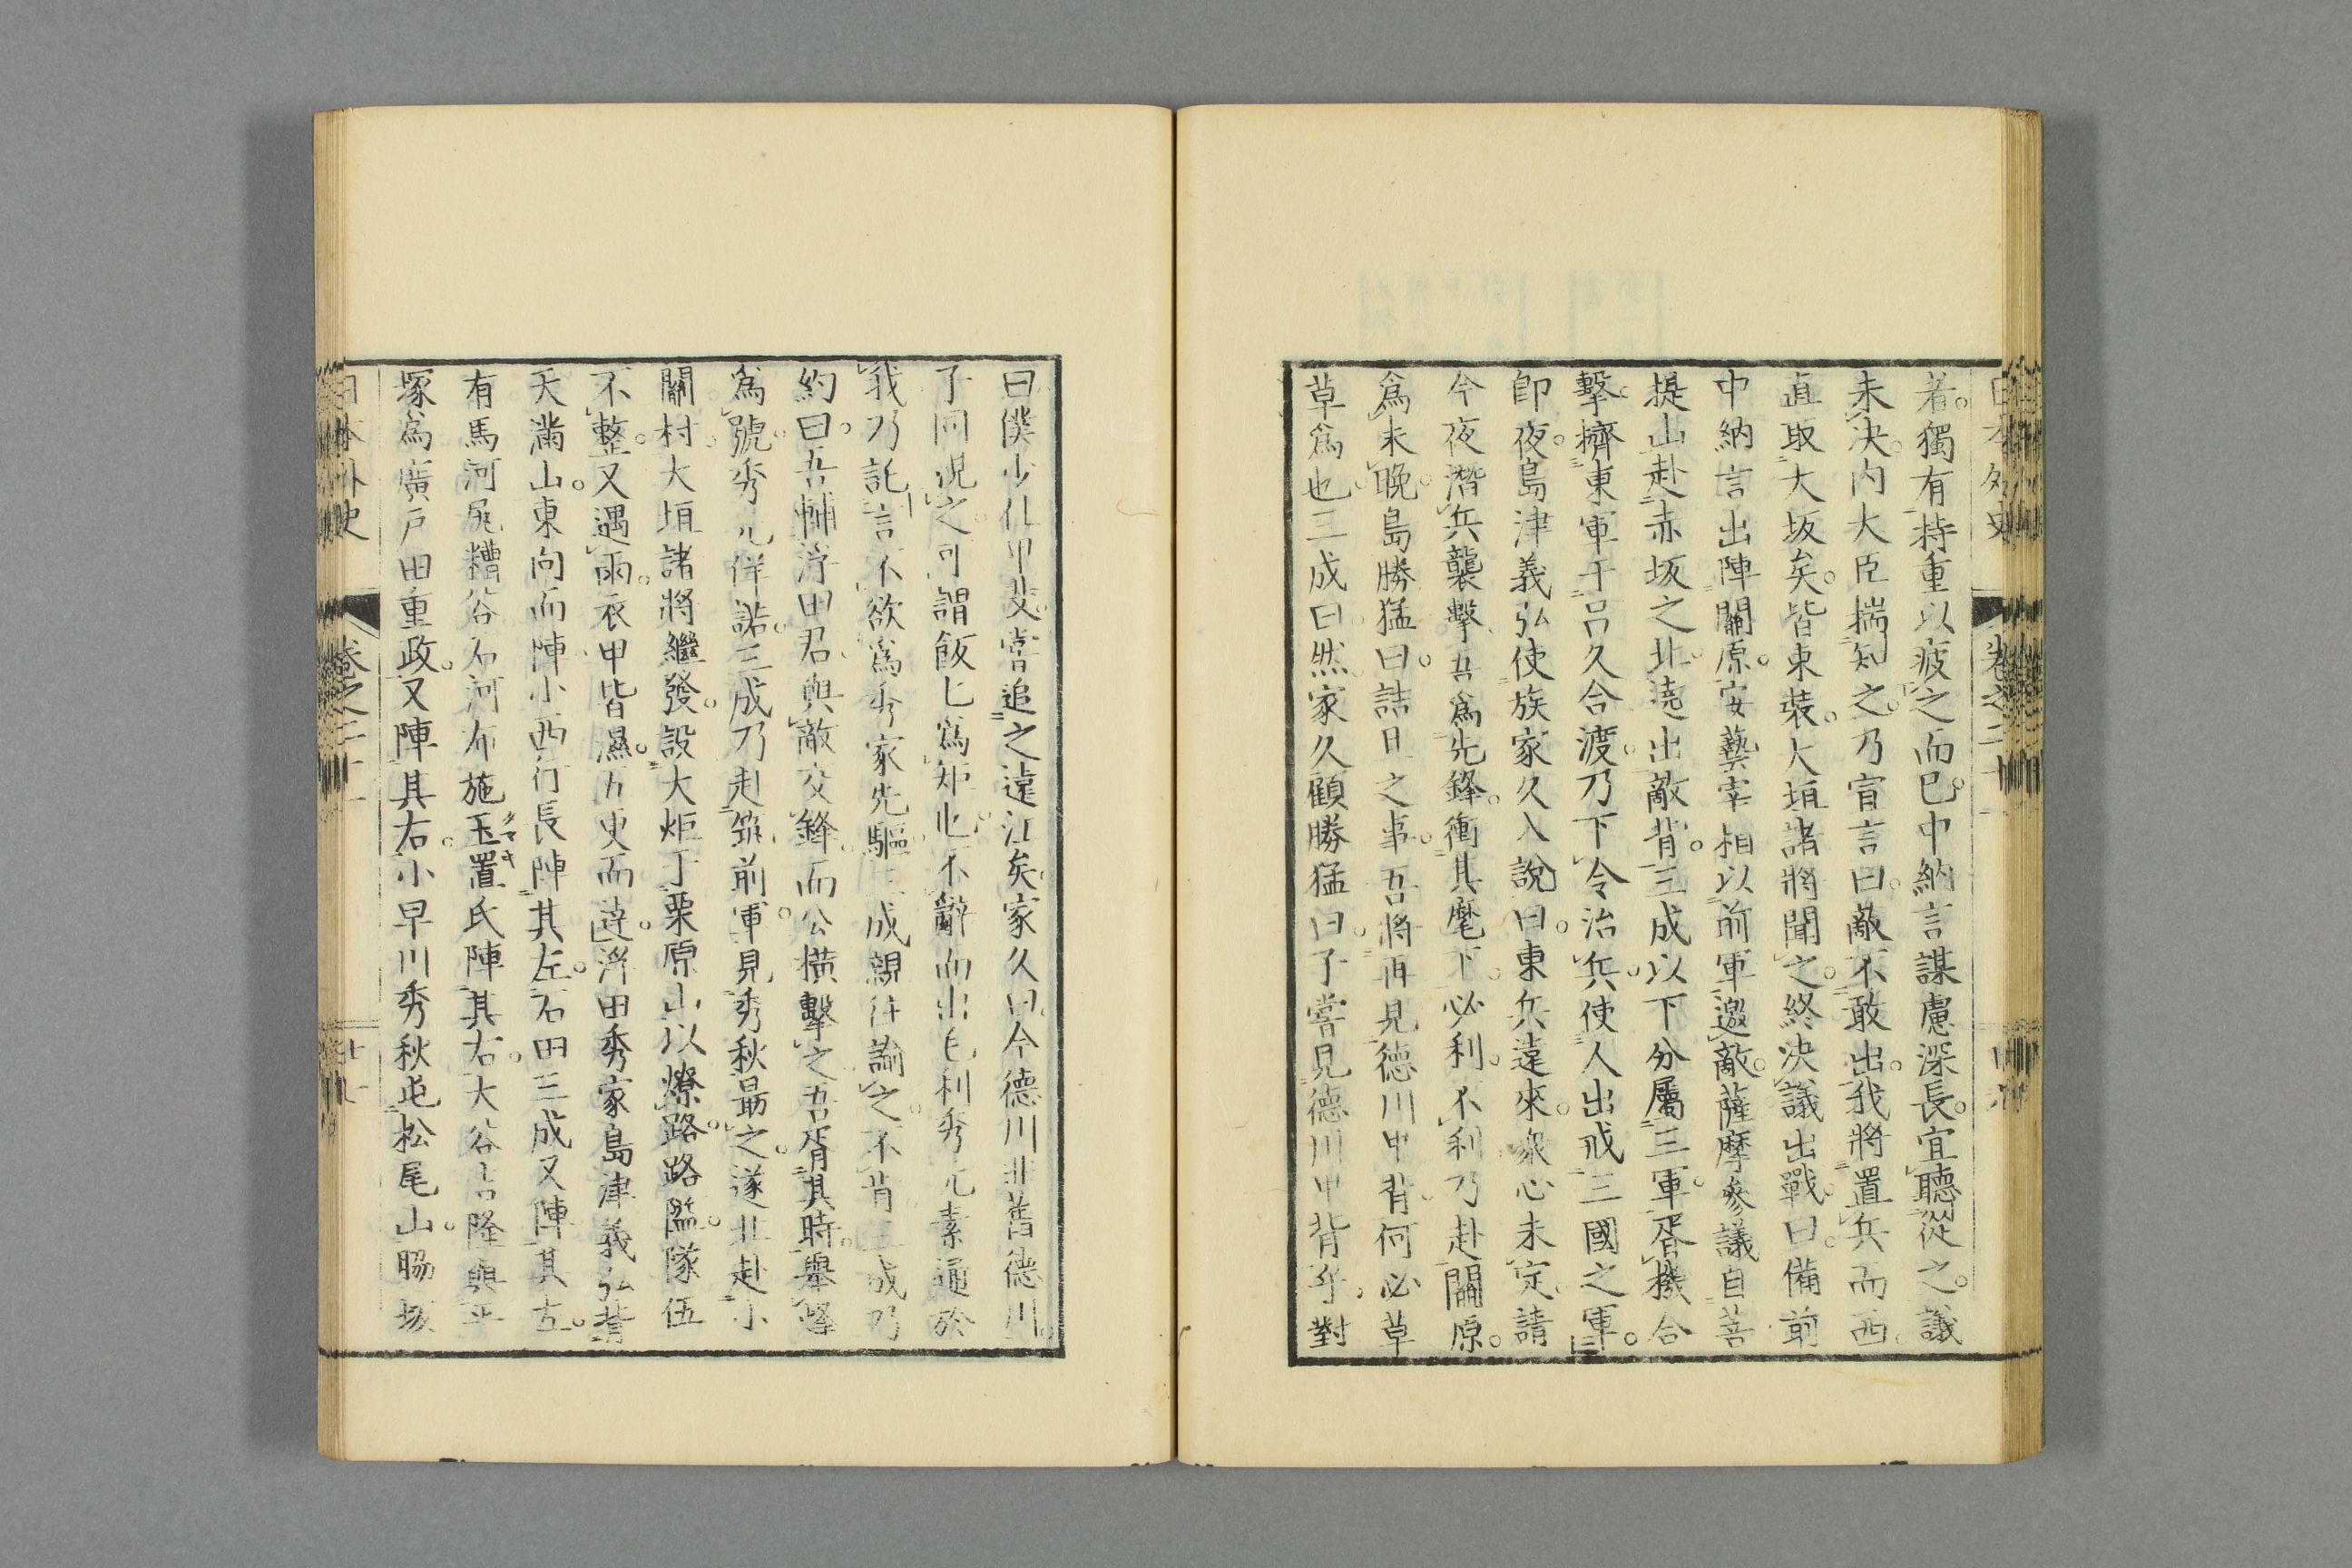 日本外史 卷之二十
者。獨有持重以疲之而已。中納言謀慮深長。宜聽從之。議
未決。内大臣揣知之。乃宣言曰。敵不敢出。我將置兵而西。
直取大坂矣。皆束裝。大垣諸將聞之。終決議出戰。曰。備前
中納言出陣關原。安藝宰相以前軍邀敵。薩摩參議自菩
提山赴赤坂之北。遶出敵背。三成以下分屬三軍。胥機合
擊。擠東軍于呂久合渡。乃下令治兵。使人出戒三國之軍。
卽夜。島津義弘使族家久入說曰。東兵遠來。衆心未定。請
今夜潛兵襲擊。吾爲先鋒。衝其麾下。必利。不利乃赴關原。
爲未晚。島勝猛曰。詰旦之事。吾將再見德川甲背。何必草
草爲也。三成曰。然。家久顧勝猛曰。子嘗見德川甲背乎。對
曰。僕少仕甲斐。嘗追之遠江矣。家久曰。今德川非舊德川。
子同視之。可謂飯匕爲矩也。不辭而出。毛利秀元素通於
我。乃託言不欲爲秀家先驅。三成親往諭之。不肯。三成乃
約曰。吾輔浮田君。與敵交鋒。而公横擊之。吾胥其時。舉烽
爲號。秀元佯諾。三成乃赴筑前軍。見秀秋。勗之。遂北赴小
關村。大垣諸將繼發。設大炬于栗原山以燎路。路隘。隊伍
不整。又遇雨。衣甲皆濕。五更而達。浮田秀家島津義弘背
天滿山。東向而陣。小西行長陣其左。石田三成又陣其左。
有馬河尻糟谷石河布施玉置氏陣其右。大谷吉隆與平
塚爲廣戶田重政。又陣其右。小早川秀秋屯松尾山。脇坂
タマキ
日本外史 卷之二十